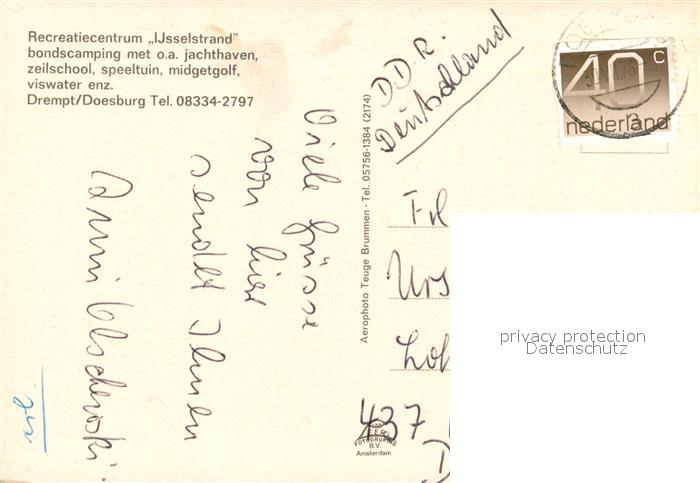 Recreatiecentrum „IJsselstrand”
bondscamping met o.a. jachthaven,
zeilschool, speeltuin, midgetgolf,
viswater enz.
Drempt/Doesburg Tel. 08334-2797
Viele Grüsse
von hier
sendet Ihnen
Anni Olschewski.
Aerophoto Teuge Brummen - Tel. 05756-1384 (2174)
D.D.R.
Deutschland
40 c
nederland
Frl
Urs
Lof
437
D
FOTODRUKINO
B.V.
Amsterdam
privacy protection
Datenschutz